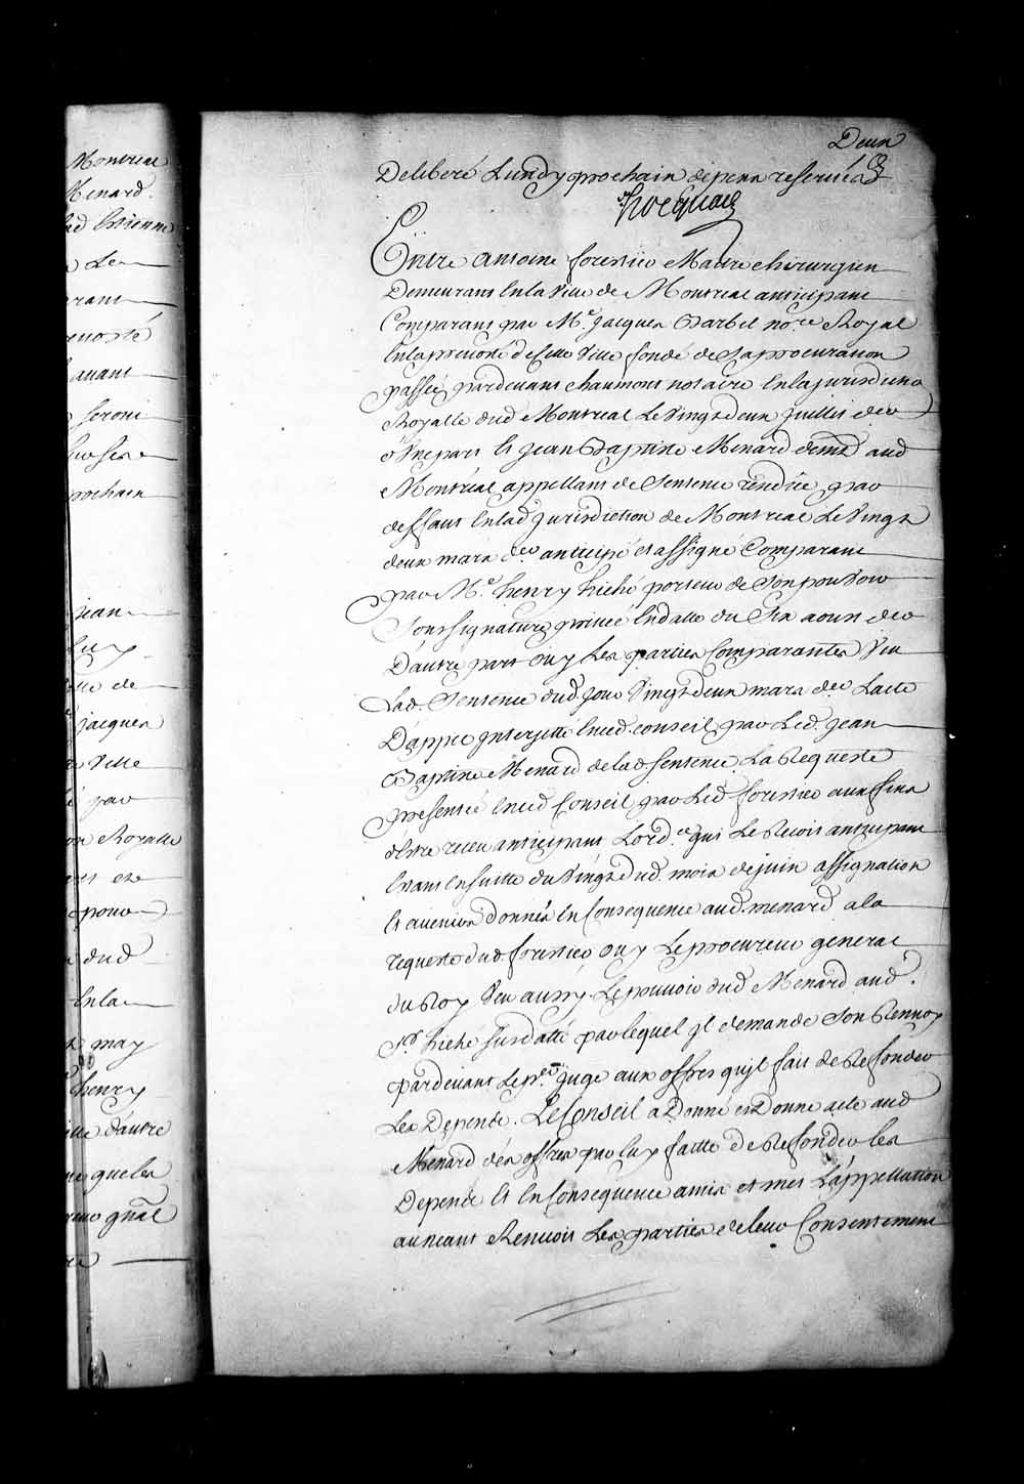 Montreal
Menard
lad Estienne
avant
seront
prochain
jean
luy
de
jacques
Ville
par
Royalle
pouvoir
dud
Enla
may
henry
d'autre
que les
gnãl
Deux
Deliberé Lundy prochain dépens reservéz
hocquart
Entre antoine forestier Maitre chirurgien
Demeurant En la ville de Montreal anticipant
Comparant par Me. jacques Barbel nore. Royal
En la prevosté de cette Ville fondé de sa procuration
passée pardevant chaumont notaire En la jurisdion
Royalle dud Montreal Le Vingt deux juillet der
d'Une part Et jean Baptiste Menard demt. aud
Montréal appellant de Sentence rendüe par
deffaut En lad jurisdiction de Montreal Le Vingt
deux mars der. anticipé et assigné Comparant
par Me. henry hiché porteur de Son pouvoir
Sous signature privée En datte du Six aoust der
D'autre part ouy Les parties Comparantes Veu
Lad. Sentence dud. jour Vingt deux mars der. Lacte
D'appel Interjetté En ced. conseil par Led. jean
Baptiste Menard de lad. Sentence. La Requeste
presentée En ced Conseil par Led forestier aux fins
d'Estre receu anticipant Lordce. qui Le Recoit anticipant
Estant En suitte du Vingt dud. mois de juin assignation
Et avenir donnés En Consequence aud. menard a la
requeste dud forestier ouy Le procureur general
du Roy Veu aussy. Le pouvoir dud Menard aud.
Sr. hiché susdatté par lequel jl demande Son Renvoy
pardevant Le pr. juge aux offres qu'jl fait de Refonder
Les Depens. Le Conseil a Donné et Donne acte aud
Menard des offres par luy faitte de Refonder les
Depens Et En Consequence a mis et met L'appellation
au neant Renvoit Les parties de leur Consentement